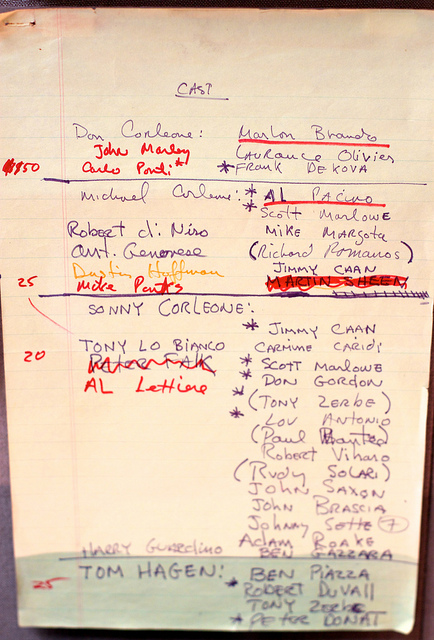 CAST
Don Corleone: Marlon Brando
John Marley Laurance Olivier
Carlo Ponti* * FRANK DE KOVA
Michael Corleone: * AL PACINO
* Scott MARLOWE
Robert di Niro MIKE MARGOTA
Ant. Genovese (Richard Romanos)
Dustin Hoffman JIMMY CAAN
25 MARTIN SHEEN
SONNY CORLEONE:
* JIMMY CAAN
TONY LO BIANCO CARMINE CARIDI
20 Peter FALK * SCOTT MARLOWE
AL Lettiere * DON GORDON
* (TONY ZERBE)
* LOU ANTONIO
(Paul
Robert Viharo
(RUDY SOLARI)
JOHN SAXON
JOHN BRASCIA
Johnny Sette 7
Adam ROAKE
HARRY Guardino BEN GAZZARA
TOM HAGEN: BEN PIAZZA
25 * ROBERT DUVALL
TONY ZERBE
* PETER DONAT